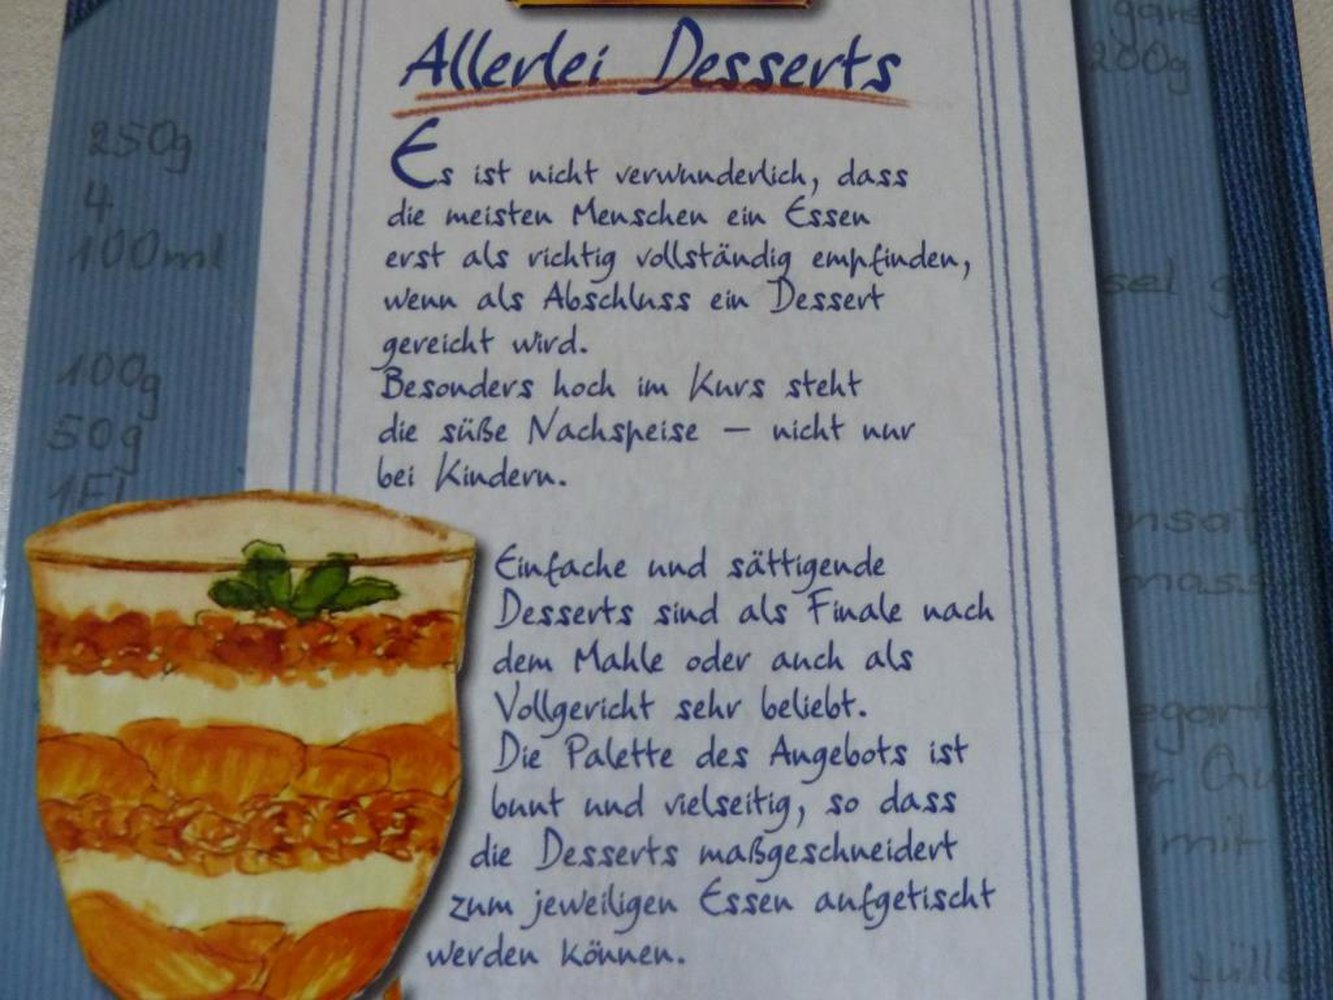 Allerlei Desserts
Es ist nicht verwunderlich, dass
die meisten Menschen ein Essen
erst als richtig vollständig empfinden,
wenn als Abschluss ein Dessert
gereicht wird.
Besonders hoch im Kurs steht
die süße Nachspeise – nicht nur
bei Kindern.
Einfache und sättigende
Desserts sind als Finale nach
dem Mahle oder auch als
Vollgericht sehr beliebt.
Die Palette des Angebots ist
bunt und vielseitig, so dass
die Desserts maßgeschneidert
zum jeweiligen Essen aufgetischt
werden können.
250g
4
100ml
100g
50g
1El
200g
mit